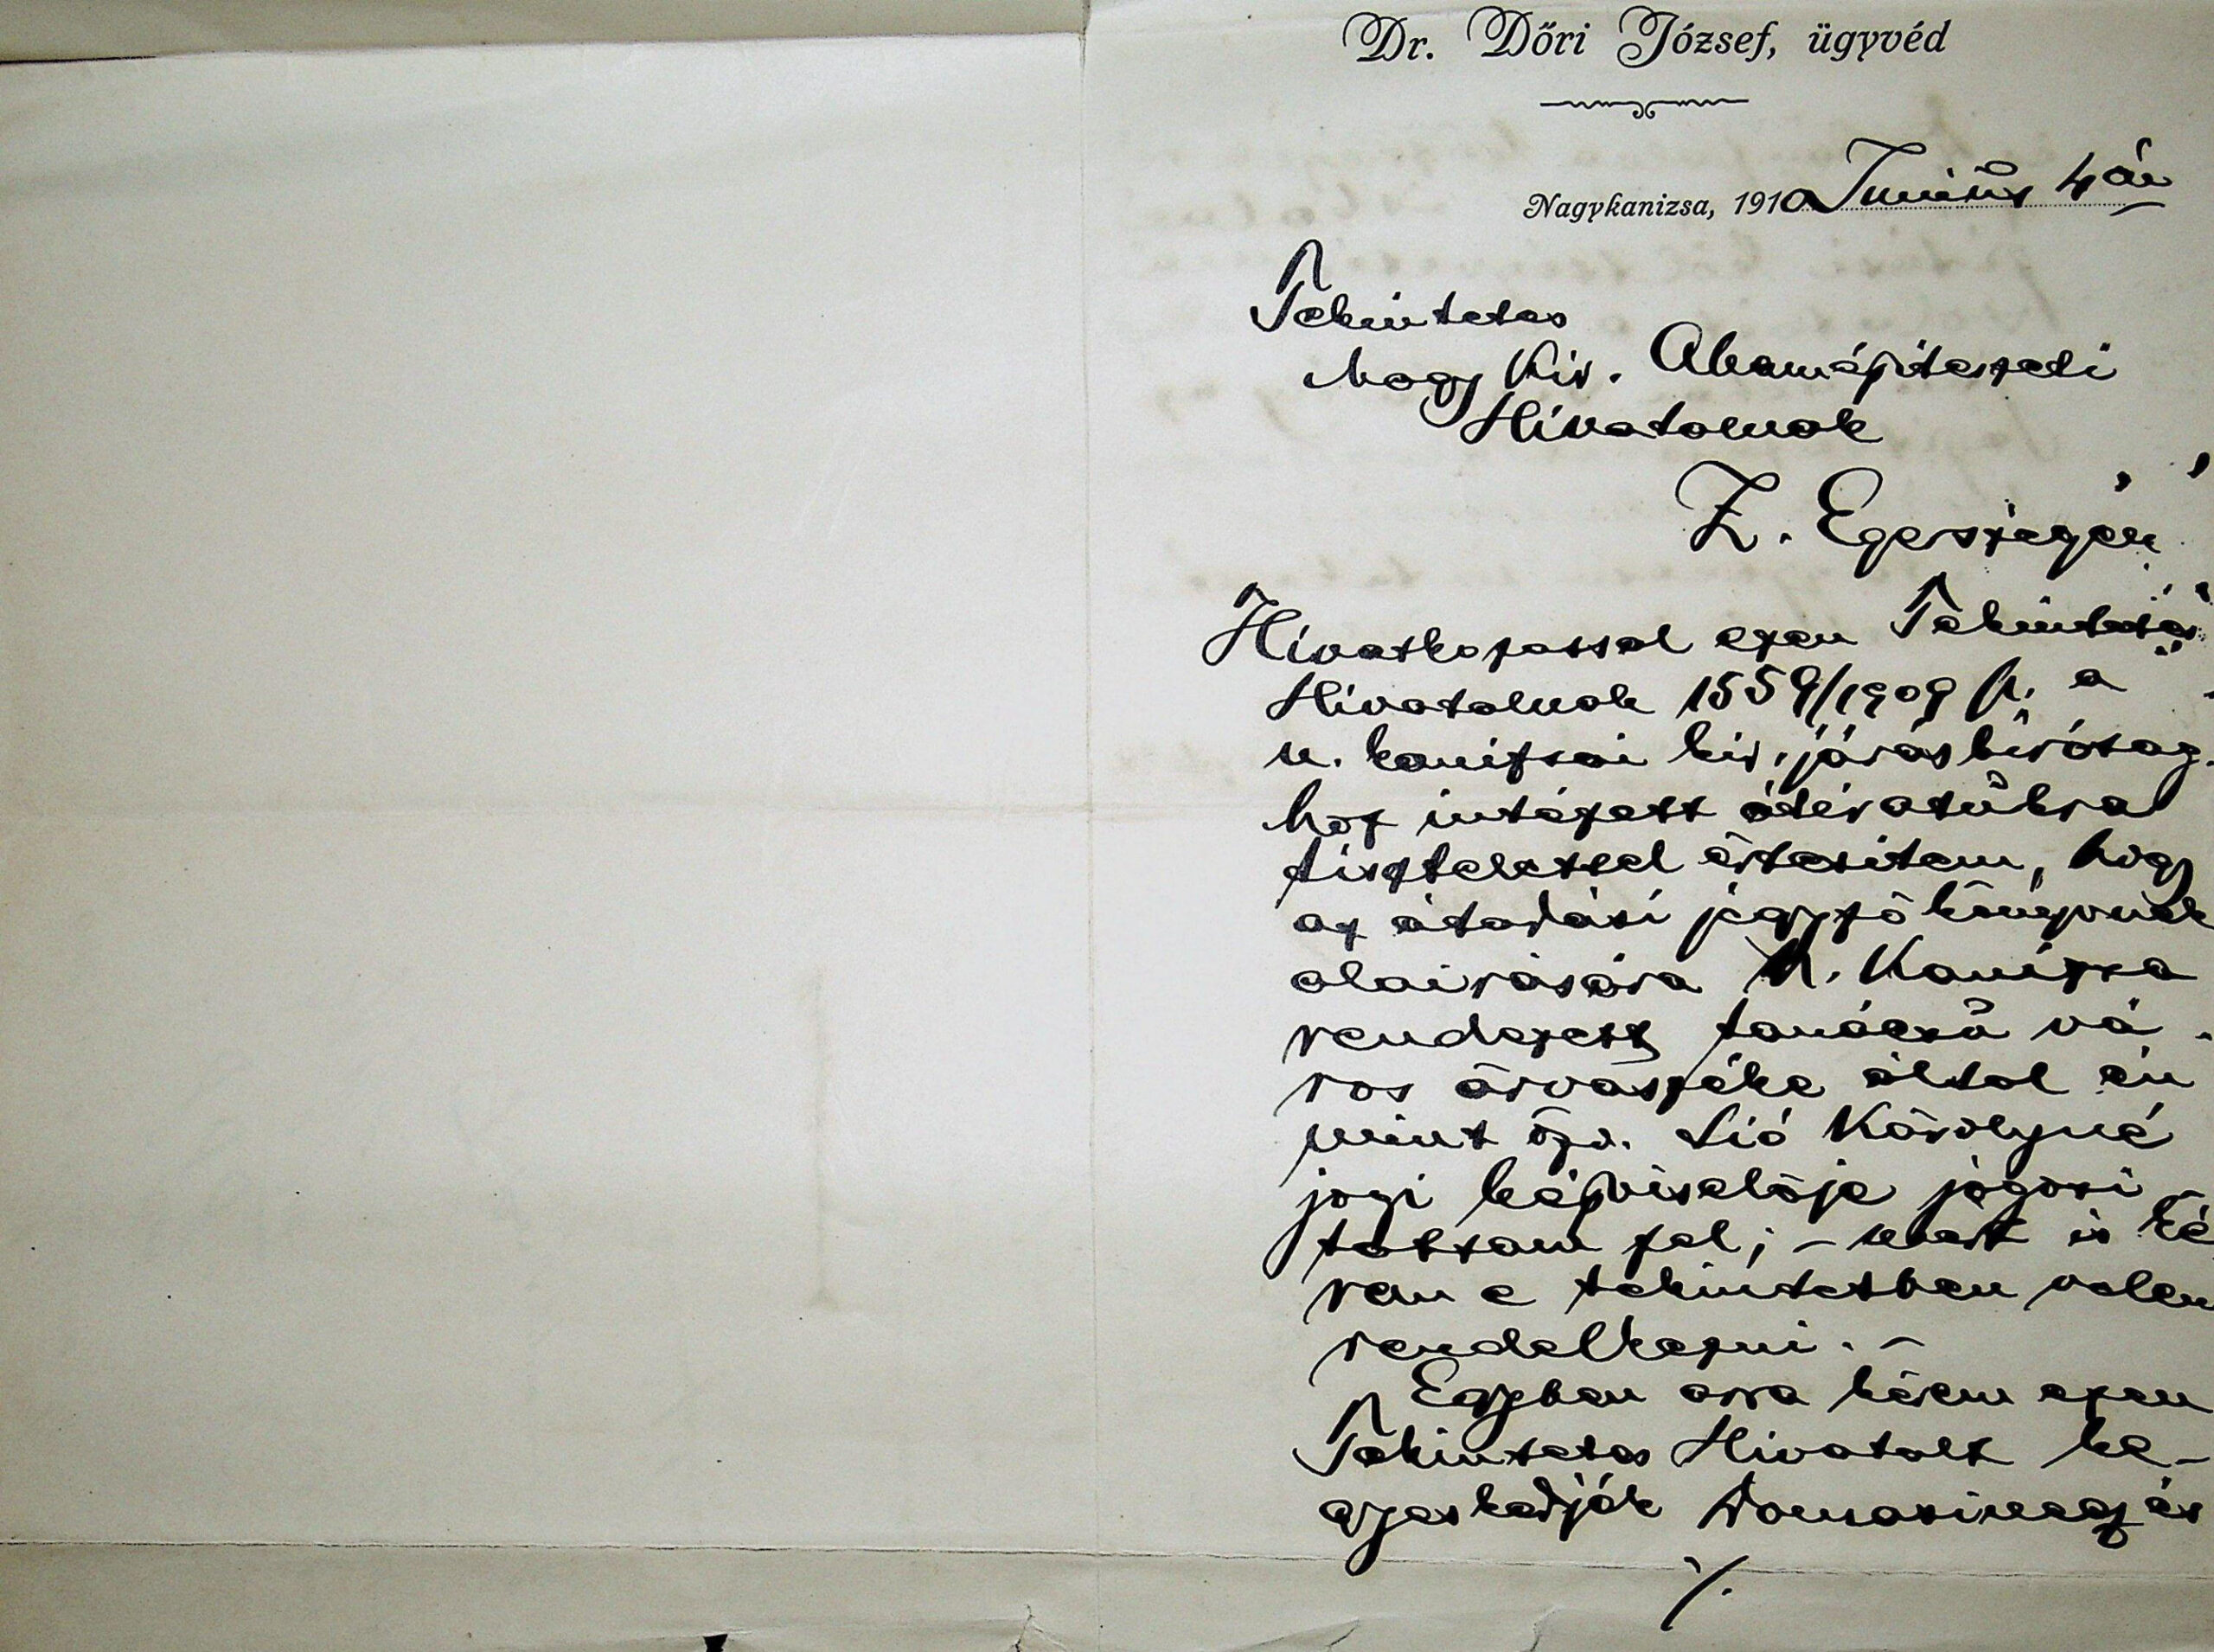 Dr. Dőri József, ügyvéd
Nagykanizsa, 1910 Junius 4 én
Tekintetes
Magy Kir. Államépitészeti
Hivatalnak
Z. Egerszegen
Hivatkozással ezen Tekintetes
Hivatalnak 1559/1909 sz. a
n. kanizsai kir. járásbiróság-
hoz intézett átiratukra
tisztelettel értesitem, hogy
az átadási jegyzőkönyvnek
aláirására N. Kanizsa
rendezett tanácsú vá-
ros árvaszéke által én
mint özv. Lió Károlyné
jogi képviselője jogosi-
tottam fel; - mert is ké
rem e tekintetben velem
rendelkezni. -
Egyben arra kérem ezen
Tekintetes Hivatalt ke-
gyeskedjék Tamásimagy és
./.